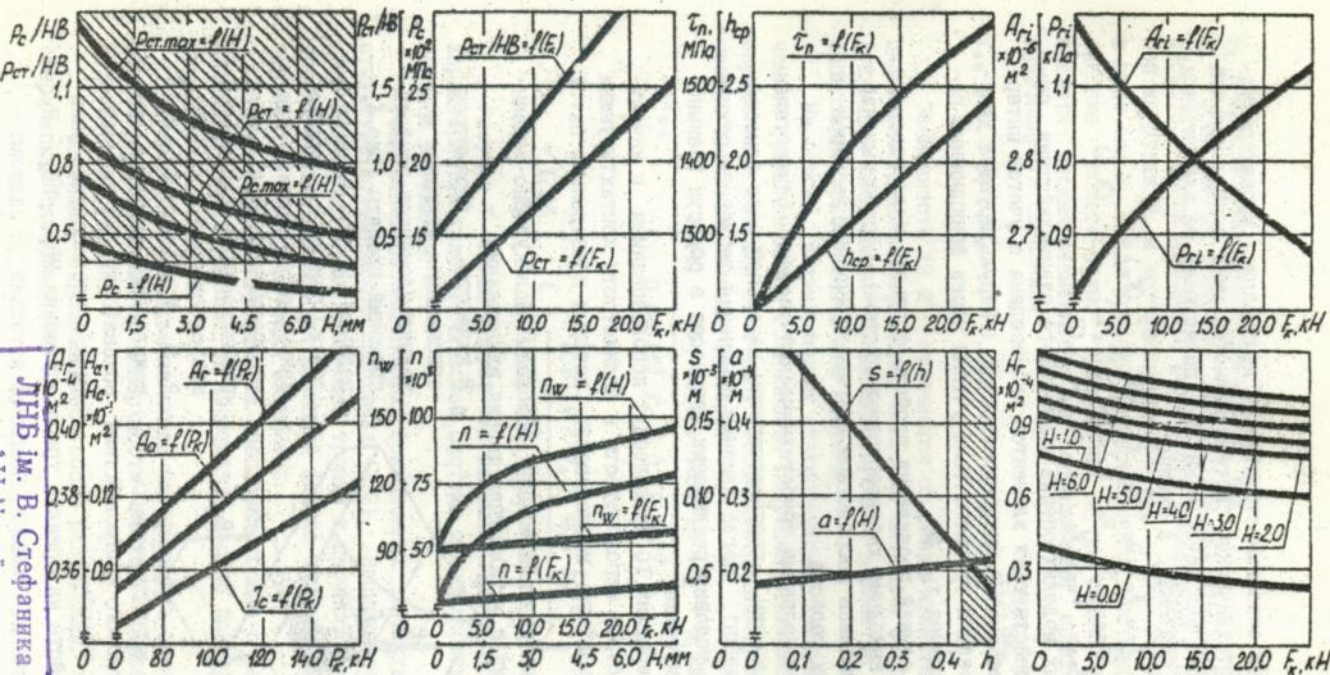 Pc/HB
Pст/HB
1,1
0,8
0,5
Pст.max=f(H)
Pст=f(H)
Pc.max=f(H)
Pc=f(H)
0 1,5 3,0 4,5 6,0 H,мм
Pст/HB
1,5
1,0
0,5
0
Pc
×10²
МПа
25
20
15
Pст/HB=f(Fк)
Pст=f(Fк)
0 5,0 10,0 15,0 20,0 Fк,кН
τn,
МПа
1500
1400
1300
0
hср
2.5
2.0
1.5
τn=f(Fк)
hср=f(Fк)
0 5,0 10,0 15,0 20,0 Fк,кН
Ari
×10⁻⁶
м²
2,8
2,7
0
Pri
кПа
1,1
1,0
0,9
Ari=f(Fк)
Pri=f(Fк)
0 5,0 10,0 15,0 20,0 Fк,кН
Ar
×10⁻⁴
м²
0,40
0,38
0,36
Aa,
Ac
м²
0,12
0,9
Ar=f(Pк)
Aa=f(Pк)
0 80 100 120 140 Pк,кН
nw
150
120
90
0
n
×10³
100
75
50
nw=f(H)
n=f(H)
nw=f(Fк)
n=f(Fк)
0 5,0 10,0 15,0 20,0 Fк,кН
1,5 3,0 4,5 6,0 H,мм
S
м
0,15
0,10
0,5
0
a
×10⁻⁴
м
0,4
0,3
0,2
S=f(h)
a=f(H)
0 0,1 0,2 0,3 0,4 h
Ar
×10⁻⁴
м²
0,9
0,6
0,3
H=1.0
H=6.0
H=5.0
H=4.0
H=3.0
H=2.0
H=0.0
0 5,0 10,0 15,0 20,0 Fк,кН
ЛНБ ім. В. Стефаника